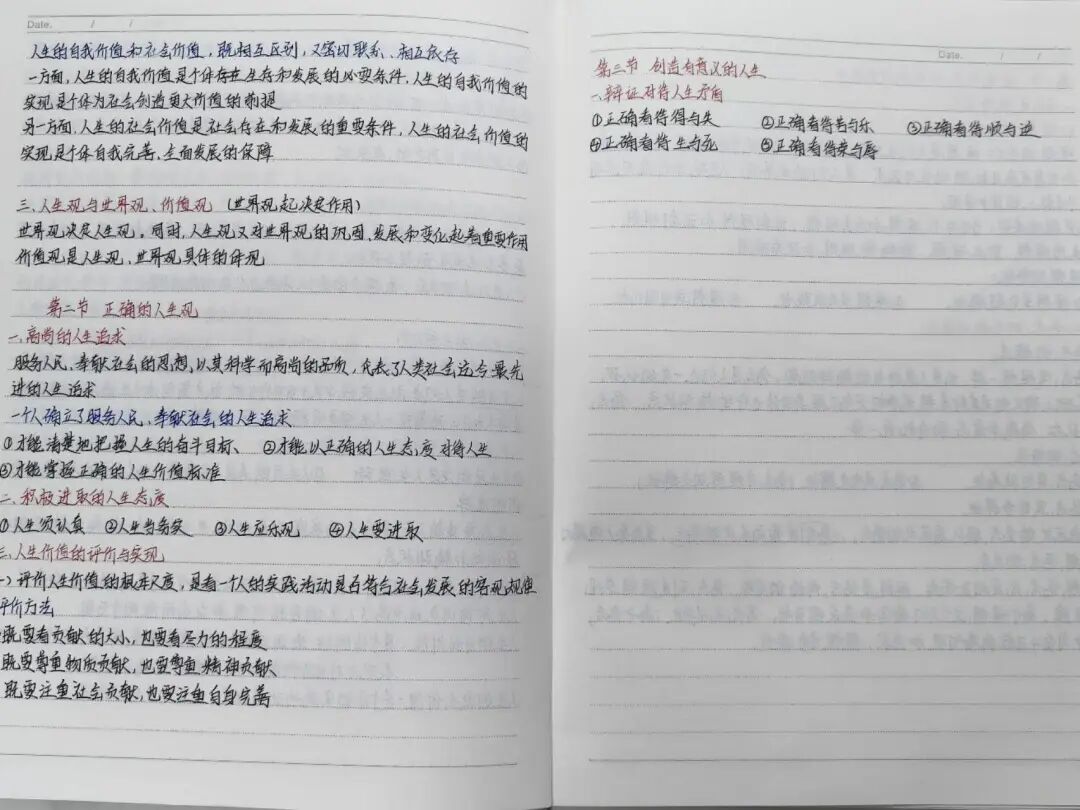 Date. / /
人生的自我价值和社会价值，既相互区别，又密切联系、相互依存
一方面，人生的自我价值是个体存在生存和发展的必要条件，人生的自我价值的
实现是个体为社会创造更大价值的前提
另一方面，人生的社会价值是社会存在和发展的重要条件，人生的社会价值的
实现是个体自我完善，全面发展的保障
三、人生观与世界观、价值观（世界观起决定作用）
世界观决定人生观。同时，人生观又对世界观的巩固、发展和变化起着重要作用
价值观是人生观、世界观具体的体现
第二节 正确的人生观
一、高尚的人生追求
服务人民、奉献社会的思想，以其科学而高尚的品质，代表了人类社会迄今最先
进的人生追求
一个人确立了服务人民、奉献社会的人生追求
①才能清楚地把握人生的奋斗目标、 ②才能以正确的人生态度对待人生
③才能掌握正确的人生价值标准
二、积极进取的人生态度
①人生须认真 ②人生当务实 ③人生应乐观 ④人生要进取
三、人生价值的评价与实现
一）评价人生价值的根本尺度，是看一个人的实践活动是否符合社会发展的客观规律
评价方法
既要看贡献的大小，也要看尽力的程度
既要尊重物质贡献，也要尊重精神贡献
既要注重社会贡献，也要注重自身完善
Date. / /
第三节 创造有意义的人生
一、辩证对待人生矛盾
①正确看待得与失 ②正确看待苦与乐 ③正确看待顺与逆
④正确看待生与死 ⑤正确看待荣与辱